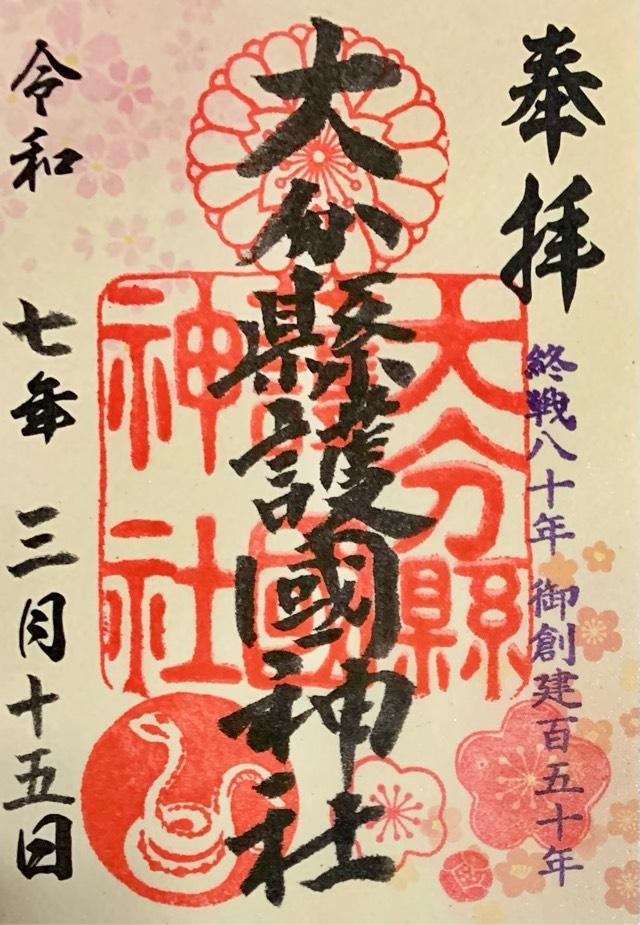 奉拝
終戦八十年 御創建百五十年
大分縣護國神社
大分縣
護國
神社
令和七年三月十五日